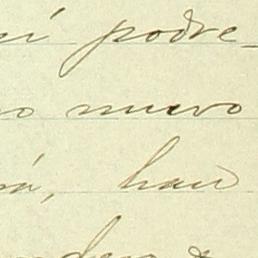 í podre-
o nuevo
rá, han